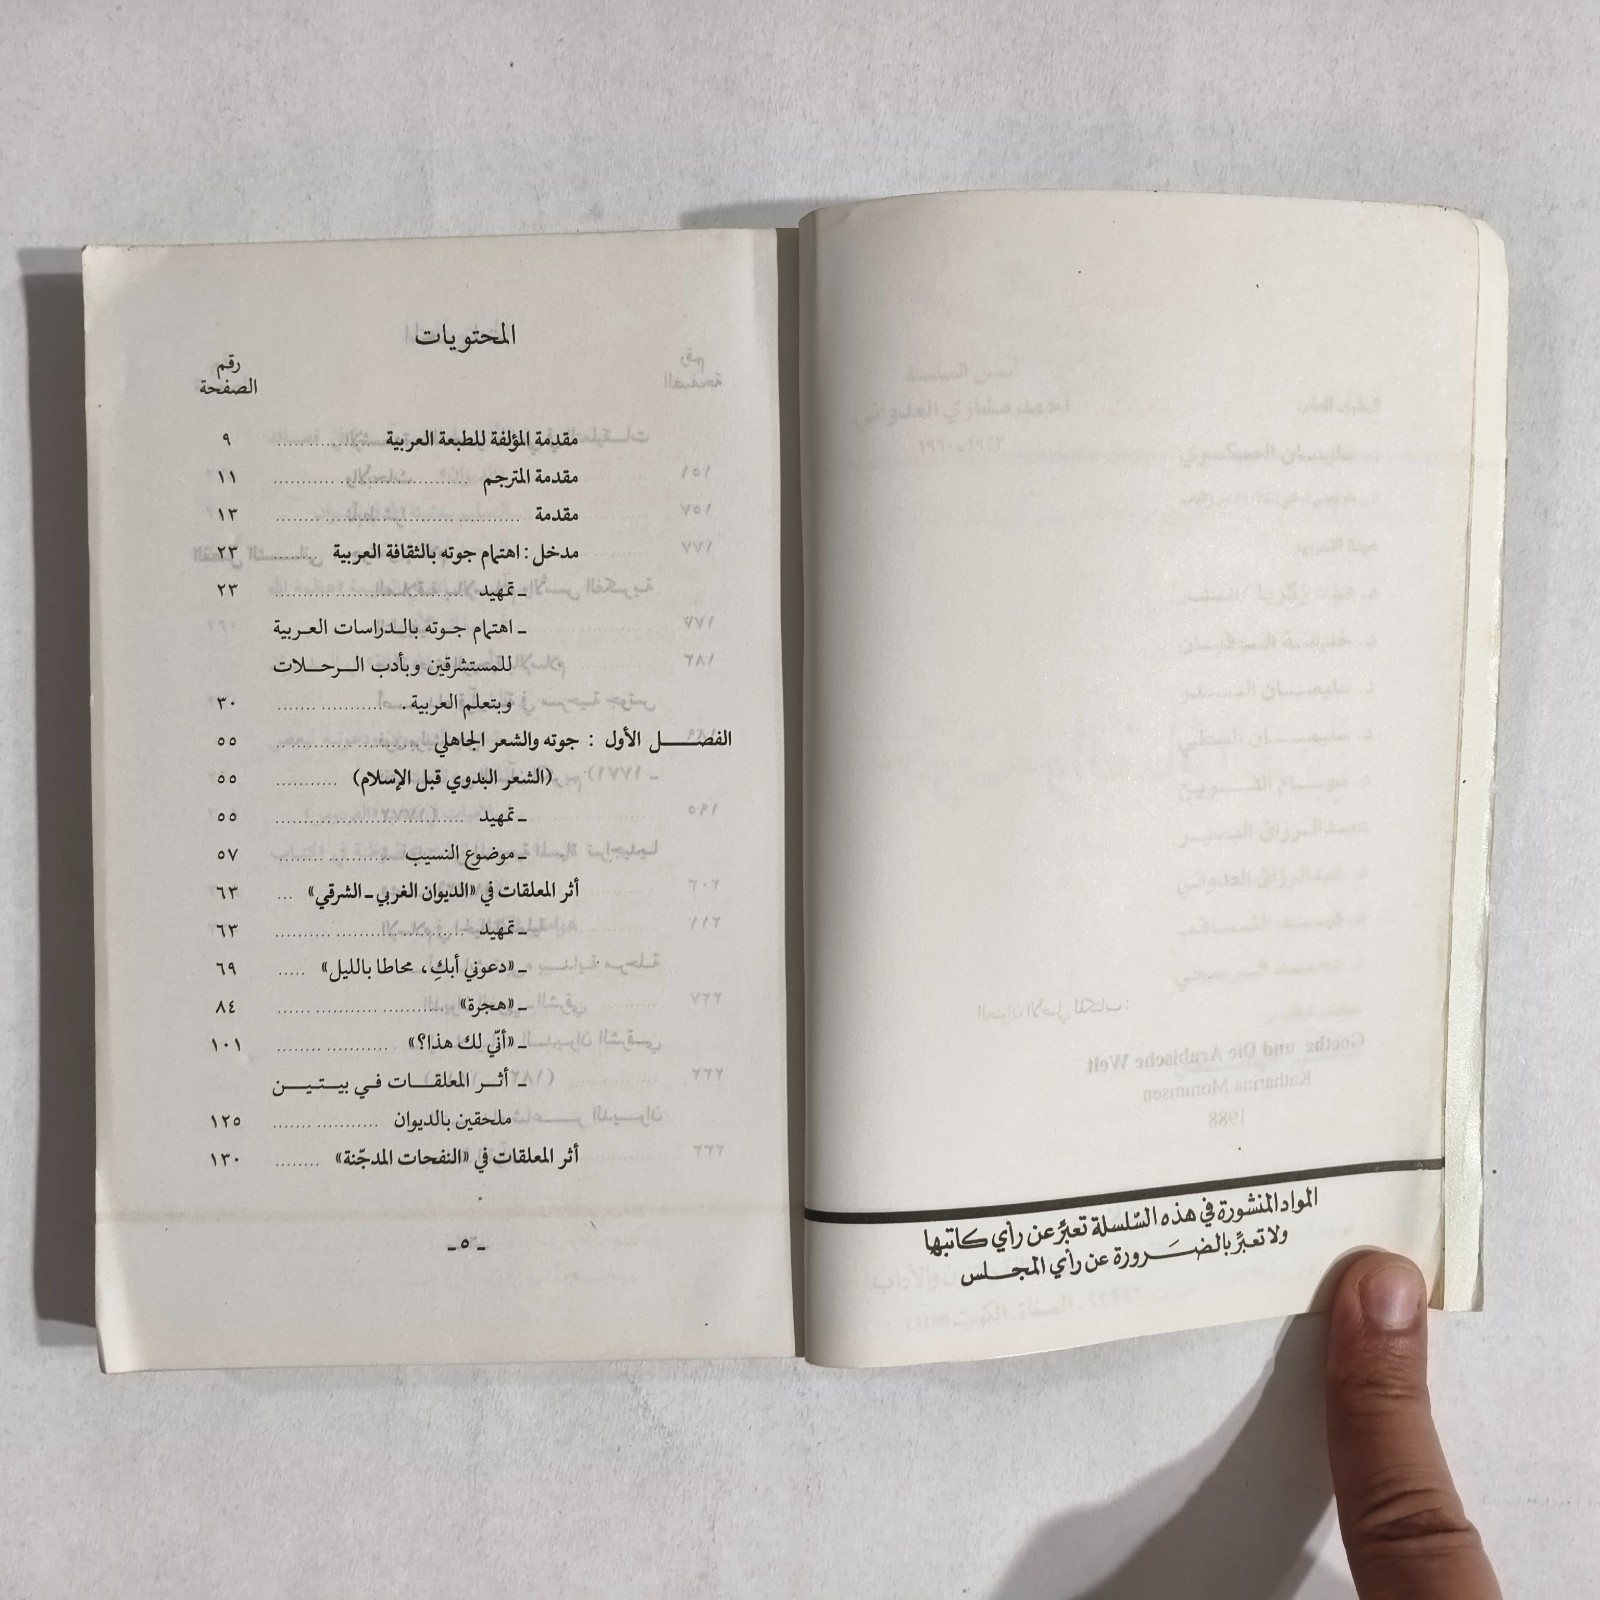 المواد المنشورة في هذه السلسلة تعبّر عن رأي كاتبها
ولا تعبّر بالضرورة عن رأي المجلس
المحتويات
رقم
الصفحة
مقدمة المؤلفة للطبعة العربية ........ ٩
مقدمة المترجم ........ ١١
مقدمة ........ ١٣
مدخل : اهتمام جوته بالثقافة العربية ........ ٢٣
ـ تمهيد ........ ٢٣
ـ اهتمام جوته بالدراسات العربية
للمستشرقين وبأدب الرحلات
وبتعلم العربية . ........ ٣٠
الفصل الأول : جوته والشعر الجاهلي ........ ٥٥
(الشعر البدوي قبل الإسلام) ........ ٥٥
ـ تمهيد ........ ٥٥
ـ موضوع النسيب ........ ٥٧
أثر المعلقات في «الديوان الغربي ـ الشرقي» ... ٦٣
ـ تمهيد ........ ٦٣
ـ «دعوني أبكِ، محاطا بالليل» ..... ٦٩
ـ «هجرة» ........ ٨٤
ـ «أنّي لك هذا؟» ........ ١٠١
ـ أثر المعلقات في بيتين
ملحقين بالديوان ........ ١٢٥
أثر المعلقات في «النفحات المدجّنة» ........ ١٣٠
ـ ٥ ـ
Goethe und Die Arabische Welt
Katharina Mommsen
1988